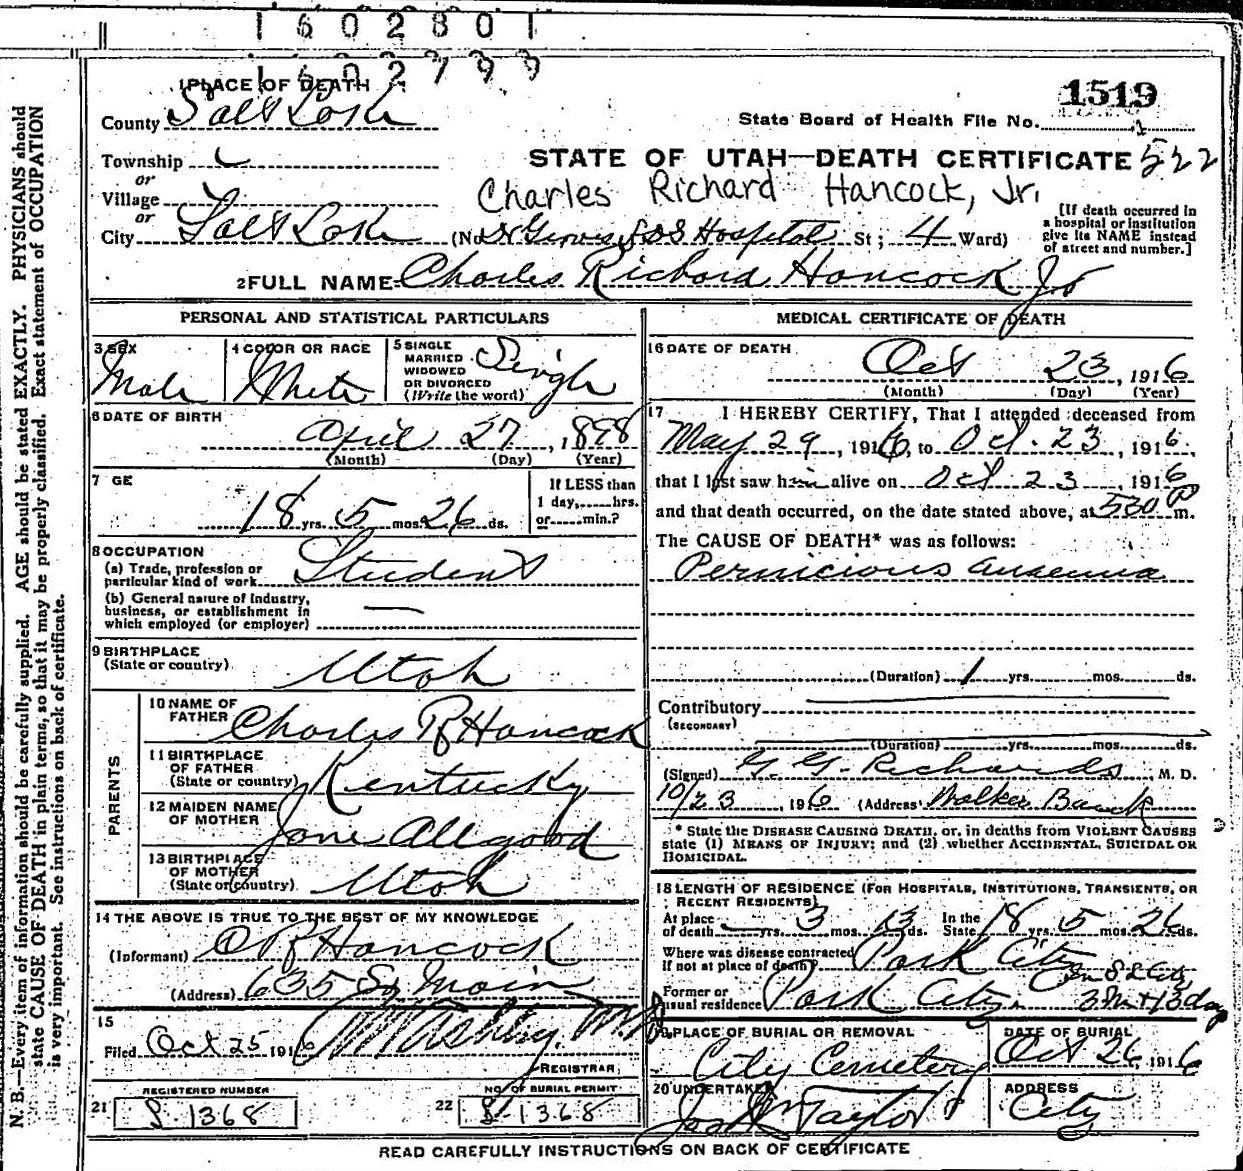 1602801
1602799
1 PLACE OF DEATH
1519
County Salt Lake
State Board of Health File No.
Township
or
STATE OF UTAH—DEATH CERTIFICATE 522
Village
Charles Richard Hancock, Jr.
or
City Salt Lake (No. Dr Groves LDS Hospital St; 4 Ward)
[If death occurred in
a hospital or institution
give its NAME instead
of street and number.]
2 FULL NAME Charles Richard Hancock Jr
PERSONAL AND STATISTICAL PARTICULARS
3 SEX
Male
4 COLOR OR RACE
White
5 SINGLE
MARRIED
WIDOWED
OR DIVORCED
(Write the word)
Single
6 DATE OF BIRTH
April 27, 1898
(Month) (Day) (Year)
7 GE
18 yrs. 5 mos. 26 ds.
If LESS than
1 day,......hrs.
or......min.?
8 OCCUPATION
(a) Trade, profession or
particular kind of work Student
(b) General nature of industry,
business, or establishment in
which employed (or employer) —
9 BIRTHPLACE
(State or country) Utah
PARENTS
10 NAME OF
FATHER Charles R Hancock
11 BIRTHPLACE
OF FATHER
(State or country) Kentucky
12 MAIDEN NAME
OF MOTHER Jane Allgood
13 BIRTHPLACE
OF MOTHER
(State or country) Utah
14 THE ABOVE IS TRUE TO THE BEST OF MY KNOWLEDGE
(Informant) C R Hancock
(Address) 635 So Main
15
Filed Oct 25 1916
REGISTRAR
REGISTERED NUMBER
21 S-1368
NO. OF BURIAL PERMIT
22 S-1368
MEDICAL CERTIFICATE OF DEATH
16 DATE OF DEATH
Oct 23, 1916
(Month) (Day) (Year)
17 I HEREBY CERTIFY, That I attended deceased from
May 29, 1916, to Oct. 23, 1916.
that I last saw him alive on Oct 23, 1916
and that death occurred, on the date stated above, at 530 P m.
The CAUSE OF DEATH* was as follows:
Pernicious anaemia
(Duration) 1 yrs. mos. ds.
Contributory
(SECONDARY)
(Duration) yrs. mos. ds.
(Signed) G. G. Richards, M. D.
10/23, 1916 (Address) Walker Bank
* State the DISEASE CAUSING DEATH, or, in deaths from VIOLENT CAUSES
state (1) MEANS OF INJURY; and (2) whether ACCIDENTAL, SUICIDAL OR
HOMICIDAL.
18 LENGTH OF RESIDENCE (FOR HOSPITALS, INSTITUTIONS, TRANSIENTS, OR
RECENT RESIDENTS)
At place
of death yrs. 3 mos. 13 ds. In the
State 18 yrs. 5 mos. 26 ds.
Where was disease contracted
if not at place of death? Park City
Former or
usual residence Park City.
3m + 13 days
19 PLACE OF BURIAL OR REMOVAL
City Cemetery
DATE OF BURIAL
Oct 26, 1916
20 UNDERTAKER
Jos Wm Taylor
ADDRESS
City
READ CAREFULLY INSTRUCTIONS ON BACK OF CERTIFICATE
N. B.—Every item of information should be carefully supplied. AGE should be stated EXACTLY. PHYSICIANS should
state CAUSE OF DEATH in plain terms, so that it may be properly classified. Exact statement of OCCUPATION
is very important. See instructions on back of certificate.